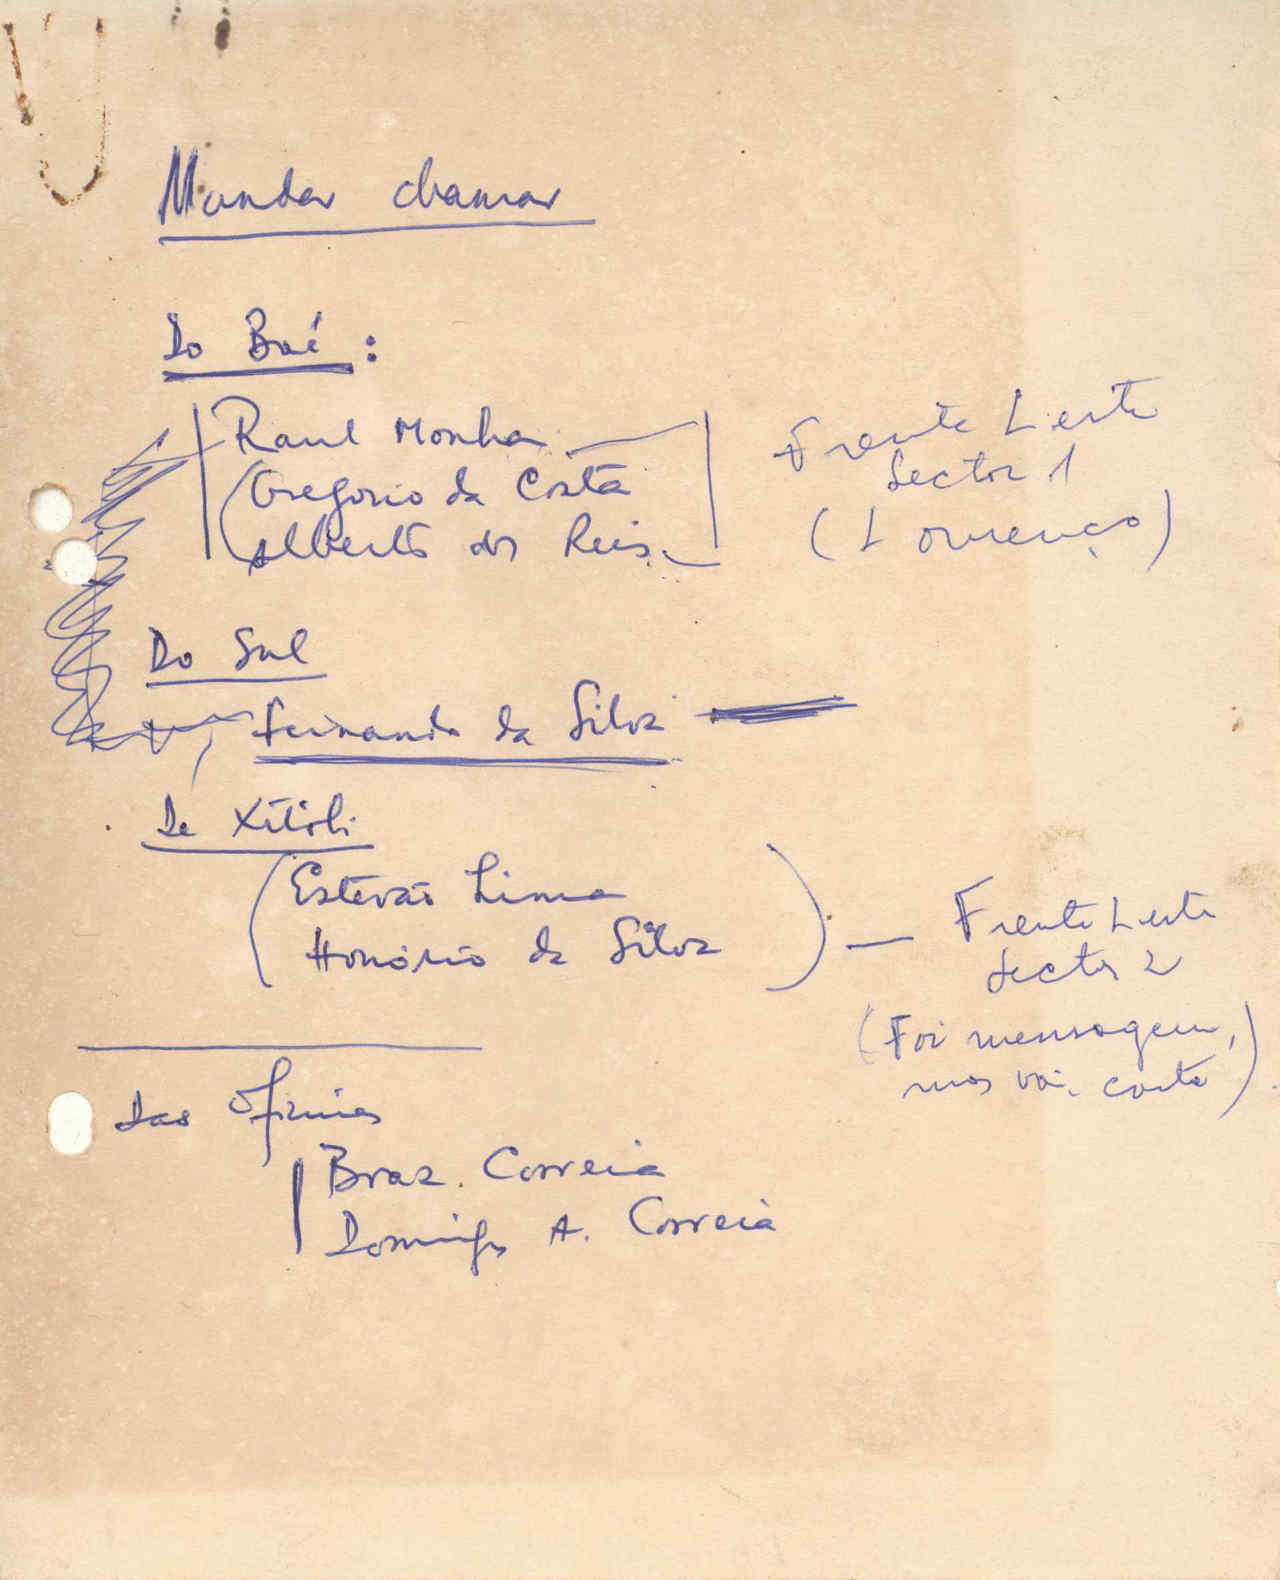 Mandar chamar
Do Boé:
Raul Monha
Gregorio da Costa
Alberto dos Reis
Frente Leste
Sector 1
(Lourenço)
Do Sul
Fernando da Silva
De Xitoli
Estevão Lima
Honório da Silva
Frente Leste
Sector 2
(Foi mensagem,
mas vai carta)
Das Oficinas
Braz. Correia
Domingos A. Correia